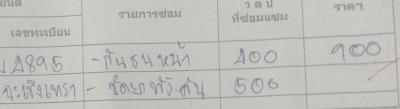 รายการซ่อม ว ด ป ราคา
เลขทะเบียน ที่ซ่อมแซม
4895 - กันชนหน้า 400 900
ฉะเชิงเทรา - ขัดยาทั้งคัน 500